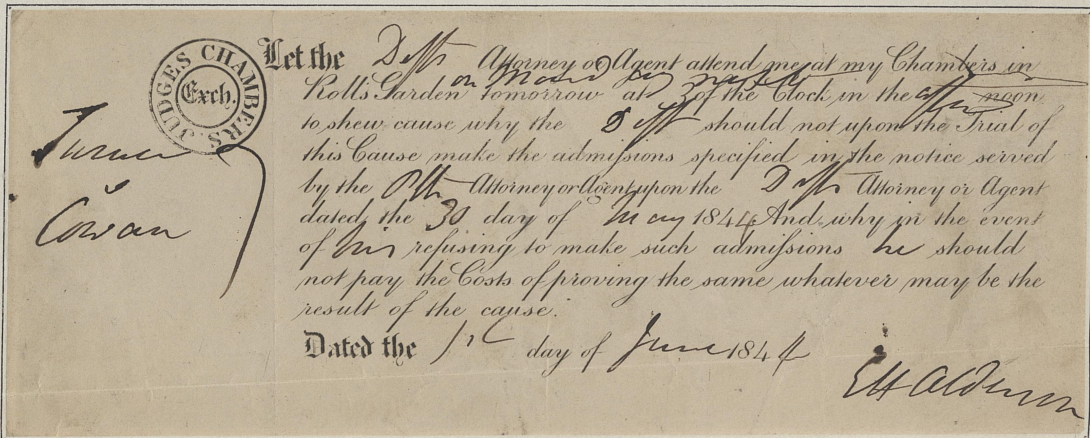 JUDGES CHAMBERS.
Exch.
Turner
v
Cowan
Let the Deft Attorney or Agent attend me at my Chambers in
Rolls Garden on Monday next tomorrow at 3 of the Clock in the after noon
to shew cause why the Deft should not upon the Trial of
this Cause make the admissions specified in the notice served
by the Plts Attorney or Agent upon the Defts Attorney or Agent
dated the 30 day of May 1844 And why in the event
of his refusing to make such admissions he should
not pay the Costs of proving the same whatever may be the
result of the cause.
Dated the 1st day of June 1844
EH Alderson